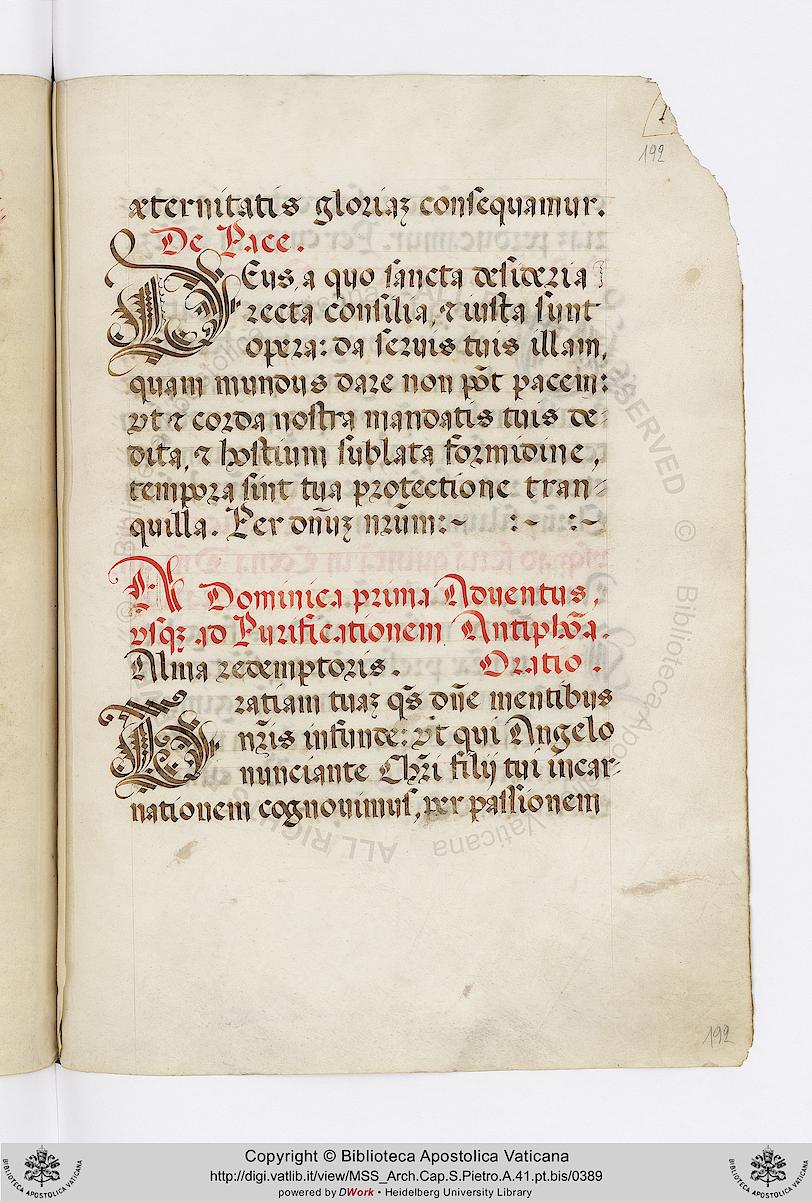 192
æternitatis gloriaꝫ consequamur.
De Pace.
DEus, a quo sancta desideria
recta consilia, ⁊ iusta sunt
opera: da seruis tuis illam,
quam mundus dare non põt pacem:
vt ⁊ corda nostra mandatis tuis de-
dita, ⁊ hostium sublata formidine,
tempora sint tua protectione tran-
quilla. Per dñuꝫ nrũm:~ :~ :~
A Dominica prima Aduentus,
vsqꝫ ad Purificationem Antiphõa.
Alma redemptoris. Oratio.
Gratiam tuaꝫ q̃s dñe mentibus
nr̃is infunde: vt qui Angelo
nunciante Chr̃i filij tui incar-
nationem cognouimus, per passionem
192
Copyright © Biblioteca Apostolica Vaticana
http://digi.vatlib.it/view/MSS_Arch.Cap.S.Pietro.A.41.pt.bis/0389
powered by DWork • Heidelberg University Library